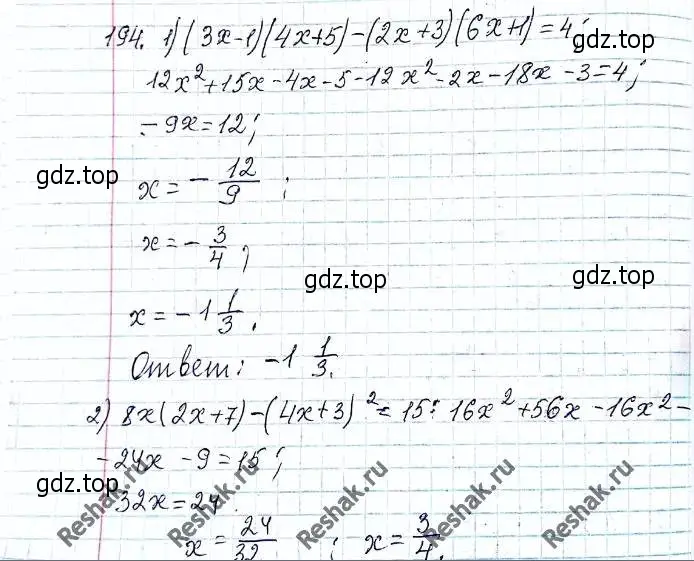 194. 1) (3x-1)(4x+5)-(2x+3)(6x+1)=4;
12x²+15x-4x-5-12x²-2x-18x-3=4;
-9x=12;
gdz.top
x=-12/9;
gdz.top
x=-3/4;
gdz.top
x=-1 1/3.
gdz.top
Ответ: -1 1/3.
2) 8x(2x+7)-(4x+3)²=15: 16x²+56x-16x²-
-24x-9=15;
gdz.top
32x=24.
gdz.top
x=24/32; x=3/4.
Reshak.ru
Reshak.ru
Reshak.ru
Reshak.ru